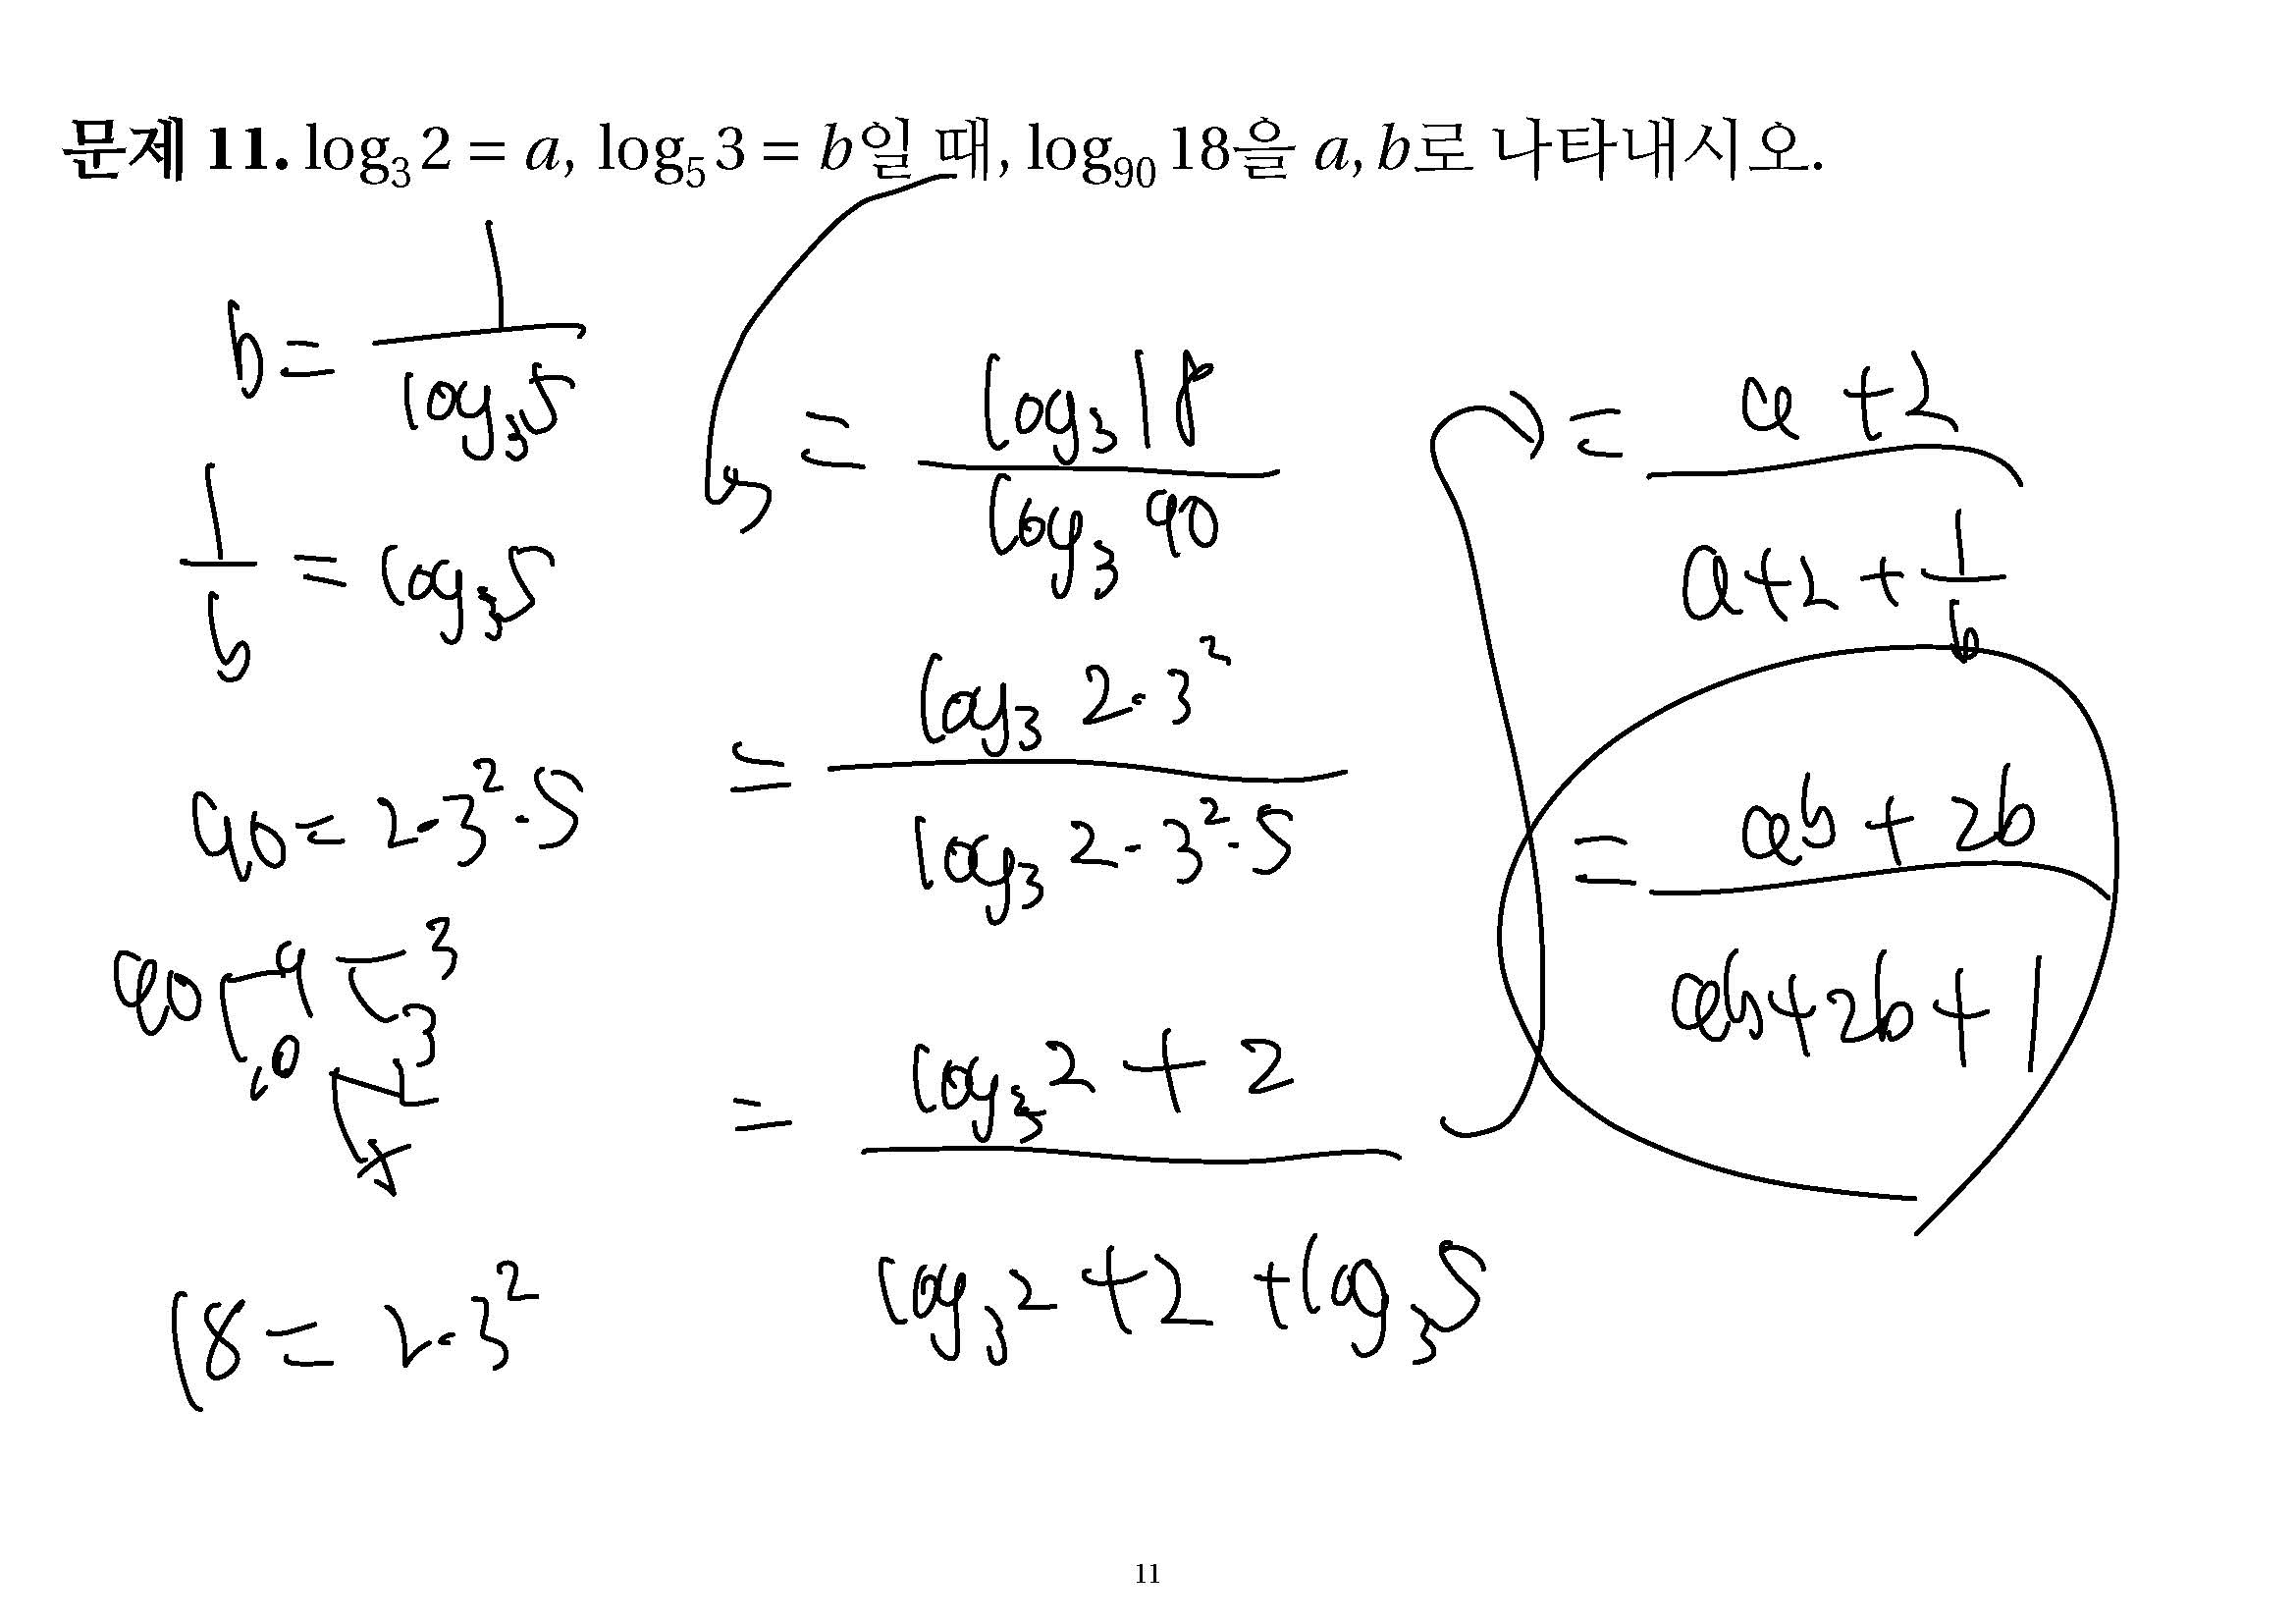 문제 11. log₃ 2 = a, log₅ 3 = b일 때, log₉₀ 18을 a, b로 나타내시오.
b = 1 / log₃5
1/b = log₃5
90 = 2·3²·5
90 9 3
3
10 2
5
18 = 2·3²
= log₃ 18 / log₃ 90
= log₃ 2·3² / log₃ 2·3²·5
= log₃2 + 2 / log₃2 + 2 + log₃5
= a + 2 / a + 2 + 1/b
= ab + 2b / ab + 2b + 1
11